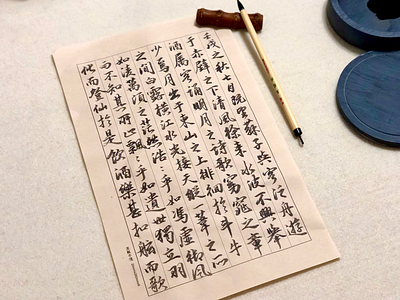 壬戌之秋七月既望蘇子與客泛舟遊
于赤壁之下清風徐來水波不興舉
酒屬客誦明月之詩歌窈窕之章
少焉月出于東山之上徘徊於斗牛
之間白露橫江水光接天縱一葦之所
如凌萬頃之茫然浩々乎如馮虛御風
而不知其所止飄々乎如遺世獨立羽
化而登仙於是飲酒樂甚扣舷而歌